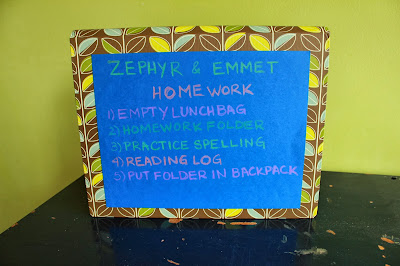 ZEPHYR & EMMET
HOMEWORK
1) EMPTY LUNCHBAG
2) HOMEWORK FOLDER
3) PRACTICE SPELLING
4) READING LOG
5) PUT FOLDER IN BACKPACK